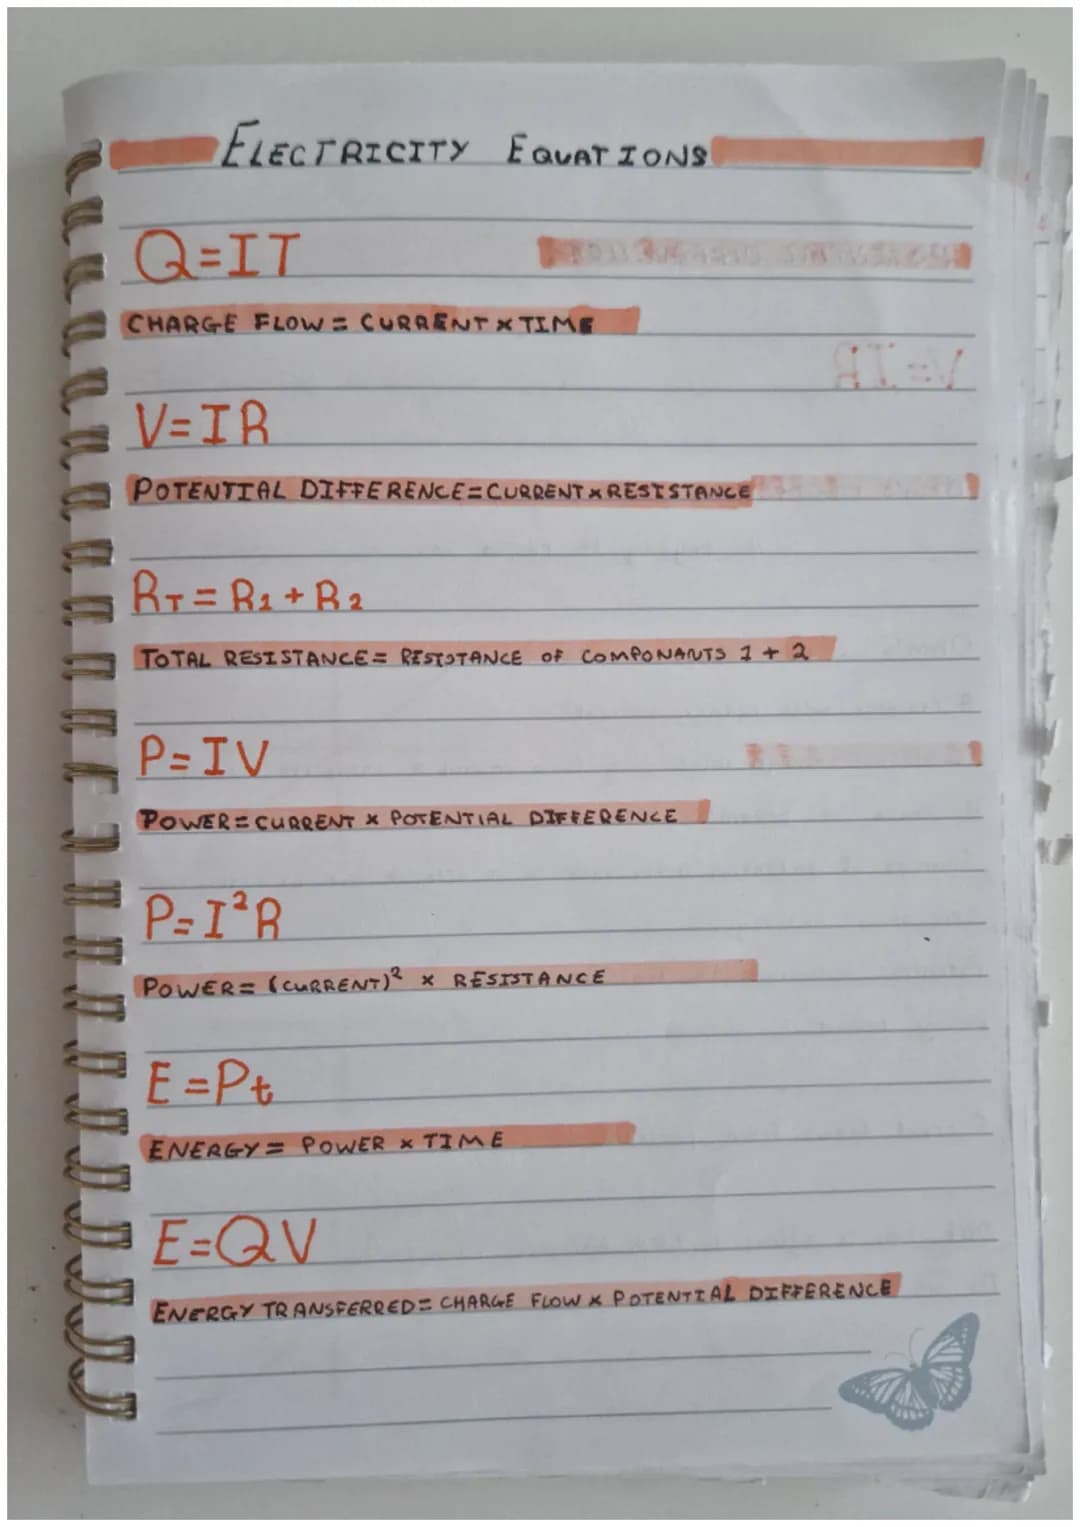 ELECTRICITY EQUATIONS
Q=IT
CHARGE FLOW = CURRENT × TIME
V=IR
V=IR
POTENTIAL DIFFERENCE=CURRENT×RESISTANCE
RT = R1 + R2
TOTAL RESISTANCE= RESISTANCE OF COMPONANTS 1 + 2
P=IV
POWER=CURRENT × POTENTIAL DIFFERENCE
P=I²R
POWER= (CURRENT)² × RESISTANCE
E=Pt
ENERGY= POWER × TIME
E=QV
ENERGY TRANSFERRED= CHARGE FLOW × POTENTIAL DIFFERENCE